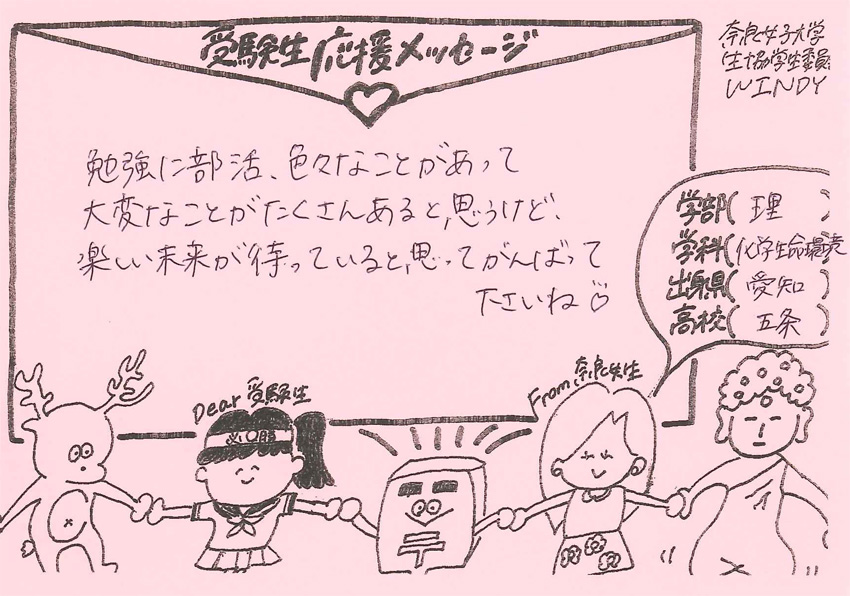 受験生応援メッセージ
奈良女子大学
生協学生委員
WINDY
勉強に部活、色々なことがあって
大変なことがたくさんあると思うけど、
楽しい未来が待っていると思ってがんばって
ださいね♡
学部(理)
学科(化学生命環境
出身県(愛知)
高校(五条)
Dear 受験生
From 奈良女生
必勝
〒